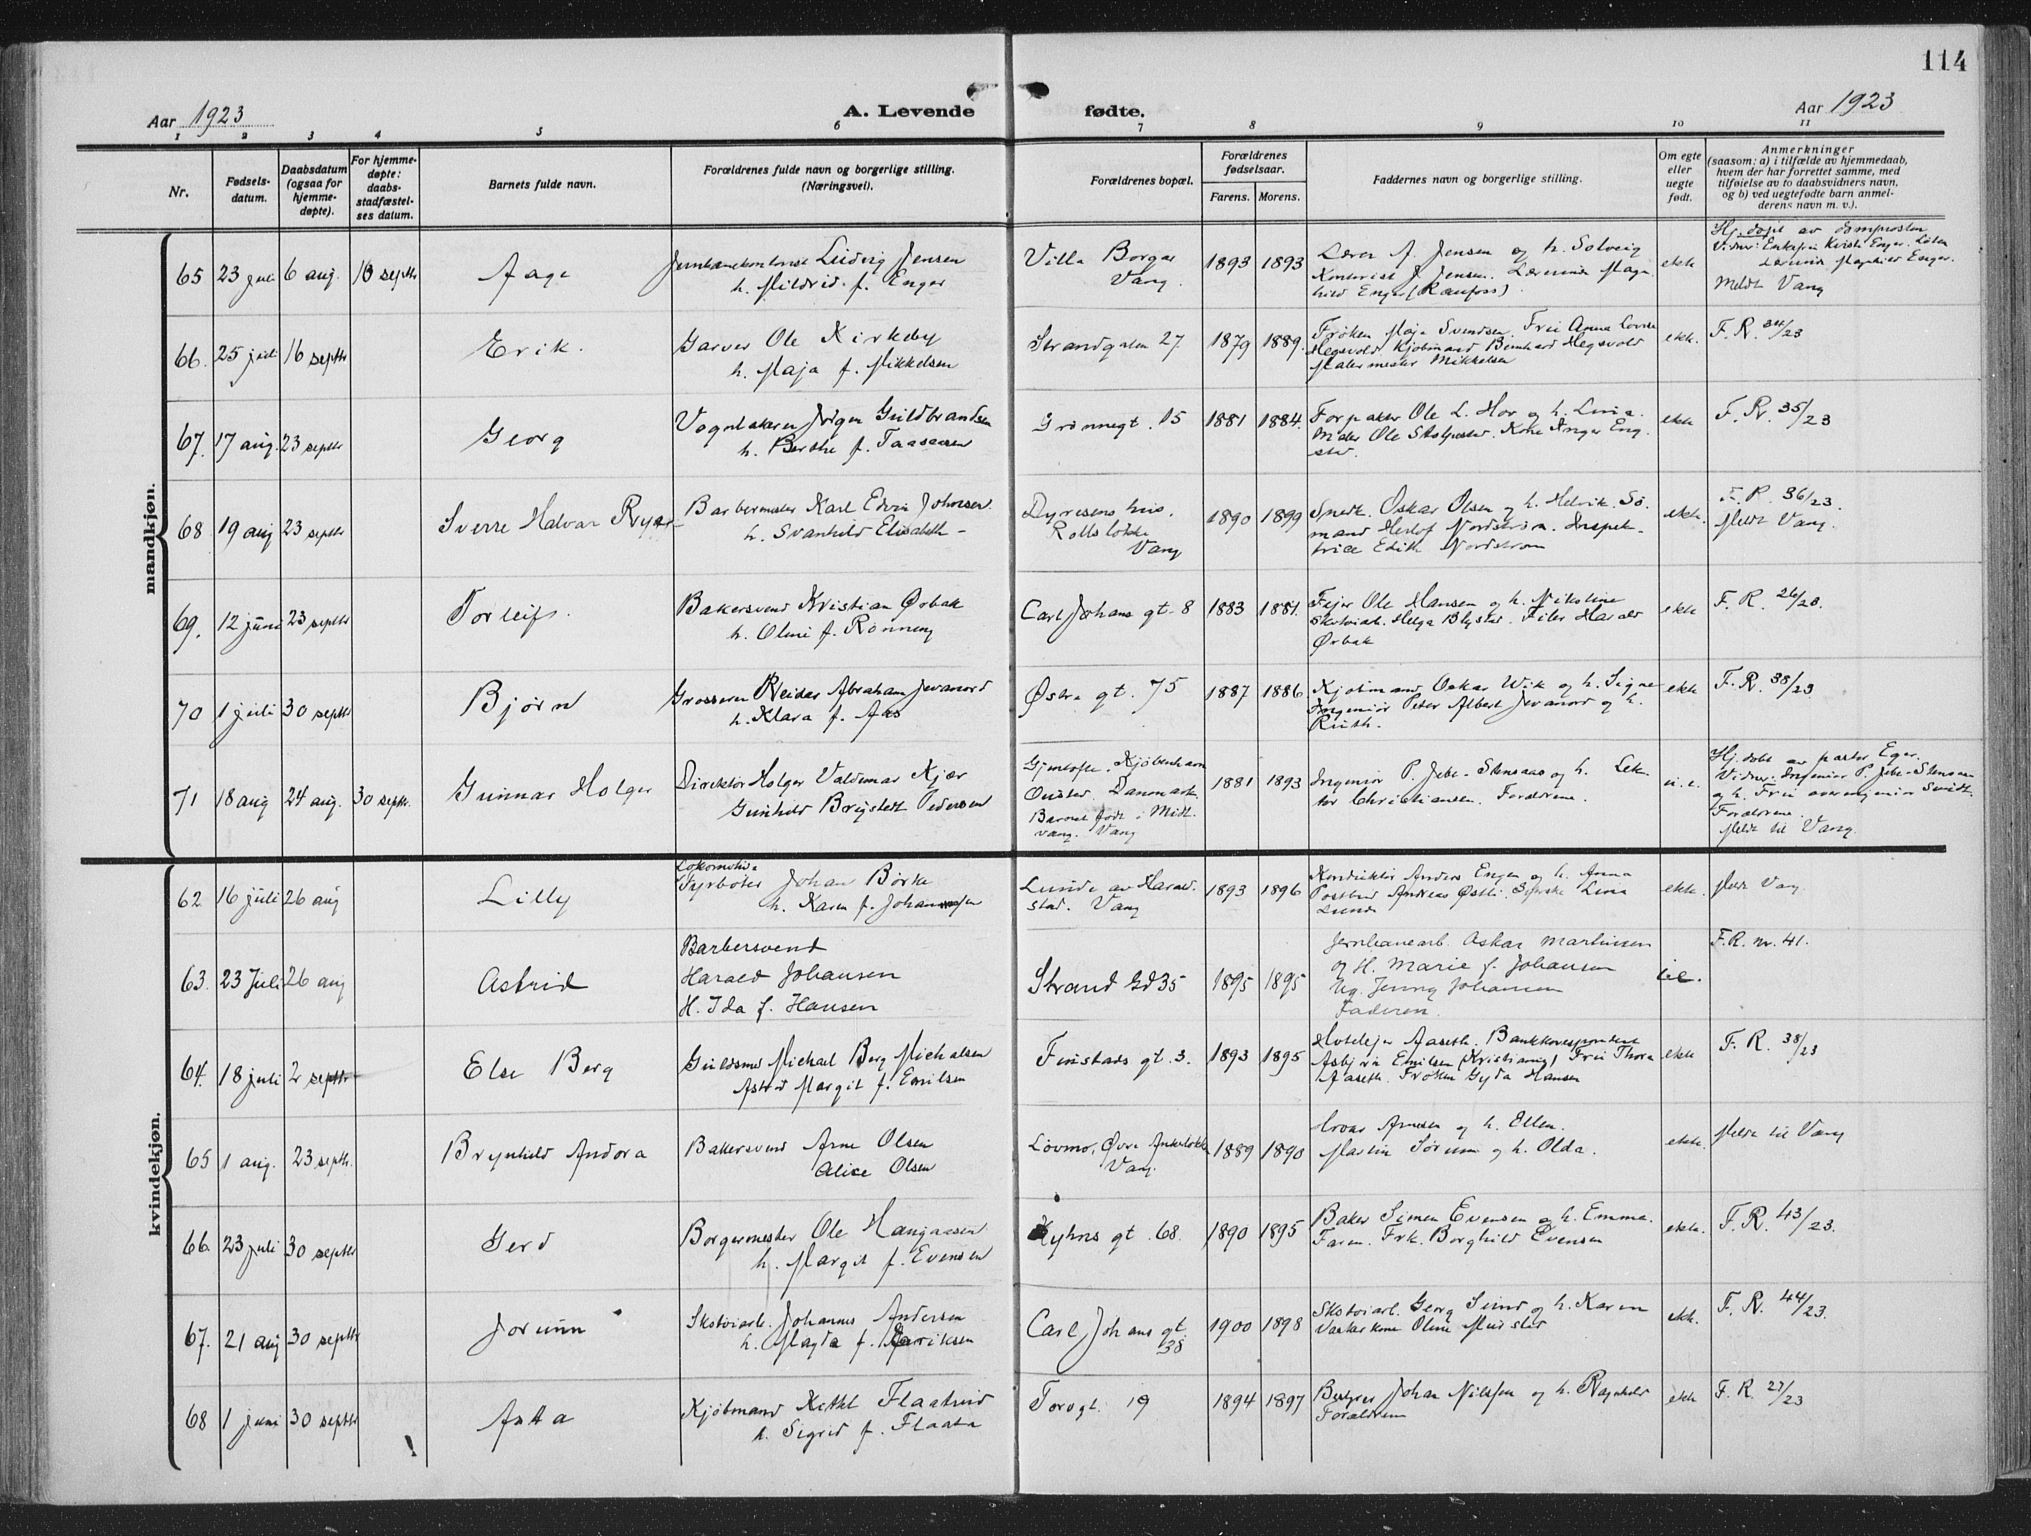 114
Aar 1923
A. Levende fødte.
Aar 1923
1 2 3 4 5 6 7 8 9 10 11
Nr.
Fødsels-
datum.
Daabsdatum
(ogsaa for
hjemme-
døpte).
For hjemme-
døpte:
daabs-
stadfæstel-
ses datum.
Barnets fulde navn.
Forældrenes fulde navn og borgerlige stilling.
(Næringsvei).
Forældrenes bopæl.
Forældrenes
fødselsaar.
Farens. Morens.
Faddernes navn og borgerlige stilling.
Om egte
eller
uegte
født.
Anmerkninger
(saasom: a) i tilfælde av hjemmedaab,
hvem der har forrettet samme, med
tilføielse av to daabsvidners navn,
og b) ved uegtefødte barn anmel-
derens navn m. v.).
mandkjøn.
65 23 juli 6 aug. 16 septbr Aage
Jernbanekontorist Ludvig Jensen
h. Mildrid f. Enger
Villa Borgar
Vang
1893 1893
Lærer A. Jensen og h. Solveig
Kontorist J. Jensen. Lærerinde Magn
hild Enger (Raufoss)
ekte
Hj. døpt av domprosten
Meldt Vang
66. 25 juli 16 septbr Erik.
Garver Ole Kirkeby
h. Maja f. Mikkelsen
Strandgaten 27
1879 1889.
Frøken Maja Svendsen. Fru Anna Lovise
Hegsvold. Kjøbmand Bernhard Hegsvold
Malermester Mikkelsen
ekte.
F. R. 34/23
67. 17 aug. 23 septbr Georg
Vognmakeren Jørgen Guldbrandsen
h. Berthe f. Taasaasen
Grønnegt. 15
1881 1884.
Forpakter Ole L. Hov og h. Lina.
Maler Ole Stolpestad. Kone Inger Eng
stad.
ekte
F. R. 35/23
68 19 aug 23 septbr Sverre Halvar Reyer
Barbermester Karl Edvin Johnsen
h. Svanhild Elisabeth –
Dyresens hus.
Rollsløkke
Vang
1890 1899
Snedk. Oskar Olsen og h. Helvik. Sø
mand Herlof Nordstrøm. Inspek-
trice Edith Nordstrøm
ekte.
F. R. 36/23.
Meldt Vang.
69. 12 juni 23 septbr Torleif.
Bakersvend Kristian Ørbak
h. Olini f. Rønning
Carl Johans gt. 8
1883 1881.
Feier Ole Hansen og h. Nikoline
Skotøiarb. Helga Blystad. Filer Harald
Ørbak
ekte
F. R. 26/23.
70 1 juli 30 septbr Bjørn
Grosserer Reidar Abraham Jevanord
h. Klara f. Aas
Østre gt. 75
1887 1886.
Kjøbmand Oskar Wik og h. Signe
Ingeniør Peter Albert Jevanord og h.
Ruth.
ekte
F. R. 38/23.
71 18 aug 24 aug. 30 septbr. Gunnar Holger
Direktør Holger Valdemar Kjær
Gunhild Brigitte Pedersen
Gjentofte. Kjøbenhavn
Danmark.
Barnet født i Midt.
vang. Vang
1881 1893
Ingeniør P. Jebe-Stensaas og h. Lek-
tor Christiansen. Forældrene.
u. e.
Hj. døbt av pastor Eger.
Vidner: Ingeniør P. Jebe-Stensaas
og h. Fru overingeniør Smidt.
Forældrene.
Meldt til Vang.
kvindekjøn.
62 16 juli 26 aug Lilly
Lokomotiv-
fyrbøter Johan Børke
h. Karen f. Johannesen
Lunde av Harald-
stad. Vang
1893 1896
Konduktør Anders Engen og h. Anna
Postbud Andreas Østli. Syerske Lina
Lunde
ekte.
Meldt Vang
63. 23 Juli 26 aug Astrid
Barbersvend
Harald Johansen
H. Ida f. Hansen
Strand Gd 35
1895 1895
Jernbanearb. Oskar Martinsen
og H. Marie f. Johansen
Ug. Jenny Johansen
Faderen.
F. R. nr. 41.
64. 18 juli 2 septbr Else Berg
Guldsmed Michael Berg Michalsen
Astrid Margit f. Emilsen
Finstads gt. 3.
1893 1895
Hoteleier Aaseth. Bankkorrespondent
Asbjørn Emilsen (Kristiania) Fru Thora
Aaseth. Frøken Gyda Hansen
ekte
F. R. 38/23
65 1 aug. 23 septbr. Brynhild Andora
Bakersvend Arne Olsen
Alice Olsen
Løvmo, Øvre Ankerløkke
Vang.
1889 1890
Ivar Arnesen og h. Ellen.
Martin Sørum og h. Olda.
ekte.
Meldt til Vang
66. 23 juli 30 septbr Gerd
Borgermester Ole Haugaasen
h. Margit f. Evensen
Kyhns gt. 68.
1890 1895
Baker Simen Evensen og h. Emma.
Faren. Frk. Borghild Evensen
ekte.
F. R. 43/23.
67. 21 aug 30 septbr Jorunn
Skotøiarb. Johannes Andersen
h. Magda f. Henriksen
Carl Johans gt.
38
1900 1898
Skotøiarb. Georg Sund og h. Karen
Vaskerkone Oline
ekte.
F. R. 44/23.
68 1 juni 30 septbr Asta
Kjøbmand Kethil Flaatrud
h. Sigrid f. Flaata
Torvgt. 19
1894 1897
Bestyrer Johan Nilssen og h. Ragnhild
Forældrene
ekte
F. R. 27/23